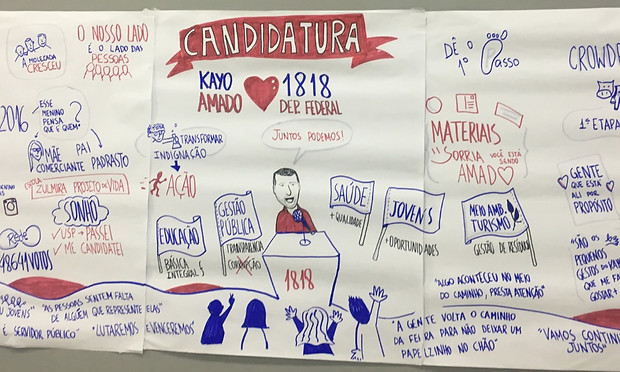 A MOLECADA
CRESCEU
O NOSSO LADO
É O LADO DAS
PESSOAS
2016
ESSE
MENINO
PENSA
QUE É QUEM?
MÃE PAI
COMERCIANTE PADRASTO
ZULMIRA PROJETO DE VIDA
SONHO
✓ USP → PASSEI
✓ ME CANDIDATEI
Rede
VOTOS
JOVENS"
E SERVIDOR PÚBLICO"
"AS PESSOAS SENTEM FALTA
DE ALGUÉM QUE REPRESENTE ELAS"
"LUTAREMOS E VENCEREMOS"
CANDIDATURA
KAYO
AMADO
1818
DEP. FEDERAL
TRANSFORMAR
INDIGNAÇÃO
AÇÃO
JUNTOS PODEMOS!
EDUCAÇÃO
BÁSICA
INTEGRAL
GESTÃO
PÚBLICA
TRANSPARÊNCIA
CORRUPÇÃO
1818
SAÚDE
+ QUALIDADE
JOVENS
+ OPORTUNIDADES
"A GENTE VOLTA O CAMINHO
DA FEIRA PARA NÃO DEIXAR UM
PAPELZINHO NO CHÃO"
DÊ O
1º PASSO
MATERIAIS
"SORRIA VOCÊ ESTÁ
SENDO
AMADO
MEIO AMB.
TURISMO
GESTÃO DE RESÍDUOS
"ALGO ACONTECEU NO MEIO
DO CAMINHO, PRESTA ATENÇÃO"
CROWDF
1ª ETAPA
GENTE
QUE ESTÁ
ALI POR
PROPÓSITO
"SÃO OS
PEQUENOS
GESTOS
QUE ME FA
GOSTAR +
"VAMOS CONTINU
JUNTOS"